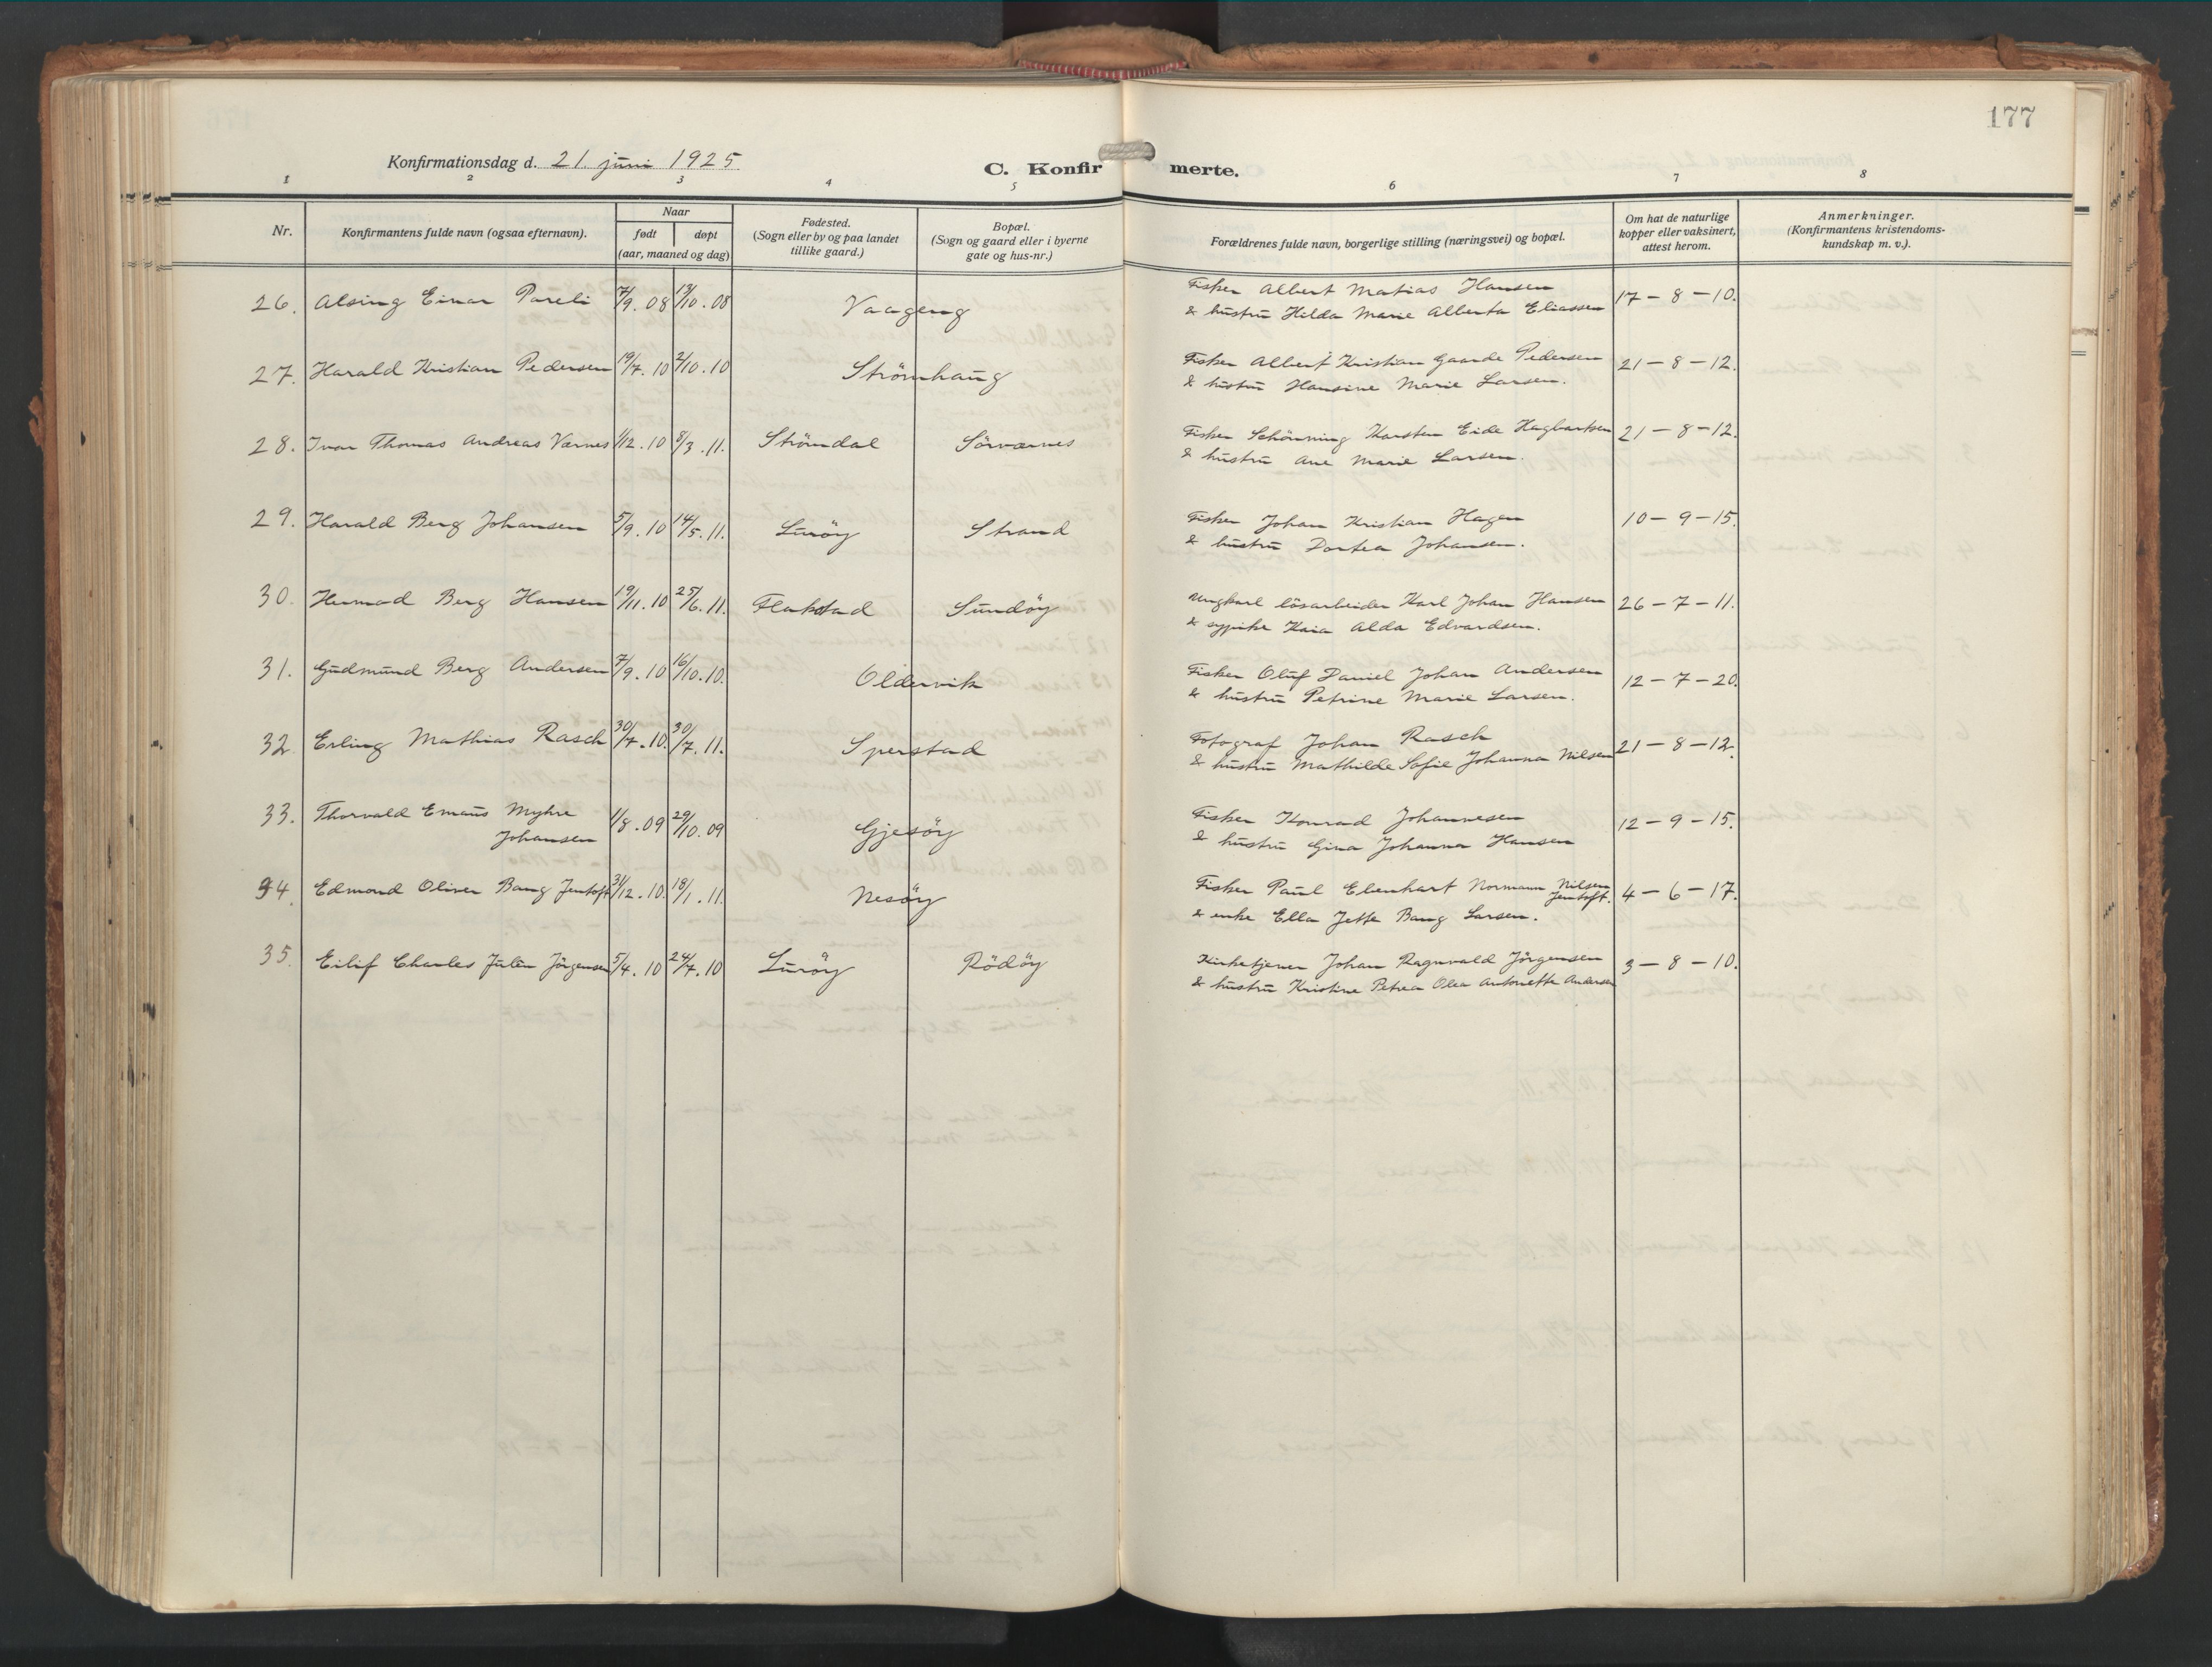 177
Konfirmationsdag d. 21. juni 1925
C. Konfirmerte.
1 2 3 4 5 6 7 8
Nr.
Konfirmantens fulde navn (ogsaa efternavn).
Naar
født døpt
(aar, maaned og dag)
Fødested.
(Sogn eller by og paa landet
tillike gaard.)
Bopæl.
(Sogn og gaard eller i byerne
gate og hus-nr.)
Forældrenes fulde navn, borgerlige stilling (næringsvei) og bopæl.
Om hat de naturlige
kopper eller vaksinert,
attest herom.
Anmerkninger.
(Konfirmantens kristendoms-
kundskap m. v.).
26. Alsing Einar Pareli 7/9. 08 13/10. 08 Vaageng Fisker Albert Matias Hansen 17 - 8 - 10.
& hustru Hilda Marie Alberta Eliassen
27. Harald Kristian Pedersen 19/7. 10 2/10. 10 Strömhaug Fisker Albert Kristian Gaarde Pedersen 21 - 8 - 12.
& hustru Hansine Marie Larsen.
28. Ivar Thomas Andreas Værnes 1/12. 10 8/3. 11. Strömdal Sörværnes Fisker Schönning Karsten Eide Hagbartsen 21 - 8 - 12.
& hustru Ane Marie Larsen.
29. Harald Berg Johansen 5/9. 10 14/5. 11. Luröy Strand Fisker Johan Kristian Hagen 10 - 9 - 15.
& hustru Dortea Johansen.
30. Hermod Berg Hansen 19/11. 10 25/6. 11. Flakstad Sundöy Ungkarl lösarbeider Karl Johan Hansen 26 - 7 - 11.
& sypike Kaia Alda Edvardsen.
31. Gudmund Berg Andersen 7/9. 10 16/10. 10. Oldervik Fisker Oluf Daniel Johan Andersen 12 - 7 - 20.
& hustru Petrine Marie Larsen.
32. Erling Mathias Rasch 30/7. 10. 30/7. 11. Sperstad Fotograf Johan Rasch 21 - 8 - 12.
& hustru Mathilde Sofie Johanna Nilsen
33. Thorvald Emaus Myhre 1/8. 09 29/10. 09 Gjesöy Fisker Konrad Johannesen 12 - 9 - 15.
Johansen & hustru Gina Johanna Hansen
34. Edmond Oliver Bang Jentoft 31/12. 10. 18/1. 11. Nesöy Fisker Paul Ebenhart Normann Nilsen Jentoft. 4 - 6 - 17.
& enke Ella Jette Bang Larsen.
35. Eilif Charles Julin Jörgensen 5/4. 10 24/4. 10 Luröy Rödöy Kirketjener Johan Ragnvald Jörgensen 3 - 8 - 10.
& hustru Kristine Petrea Olea Antonette Andersen